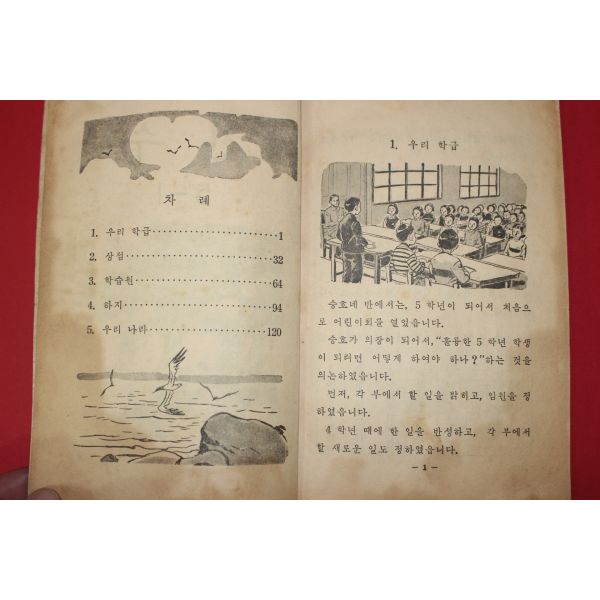 차 례
1. 우리 학급 ································ 1
2. 상점 ································ 32
3. 학습원 ································ 64
4. 하지 ································ 94
5. 우리 나라 ································ 120
1. 우리 학급
승호네 반에서는, 5 학년이 되어서 처음으
로 어린이회를 열었읍니다.
승호가 의장이 되어서, "훌륭한 5 학년 학생
이 되려면 어떻게 하여야 하나?" 하는 것을
의논하였읍니다.
먼저, 각 부에서 할 일을 밝히고, 임원을 정
하였읍니다.
4 학년 때에 한 일을 반성하고, 각 부에서
할 새로운 일도 정하였읍니다.
— 1 —